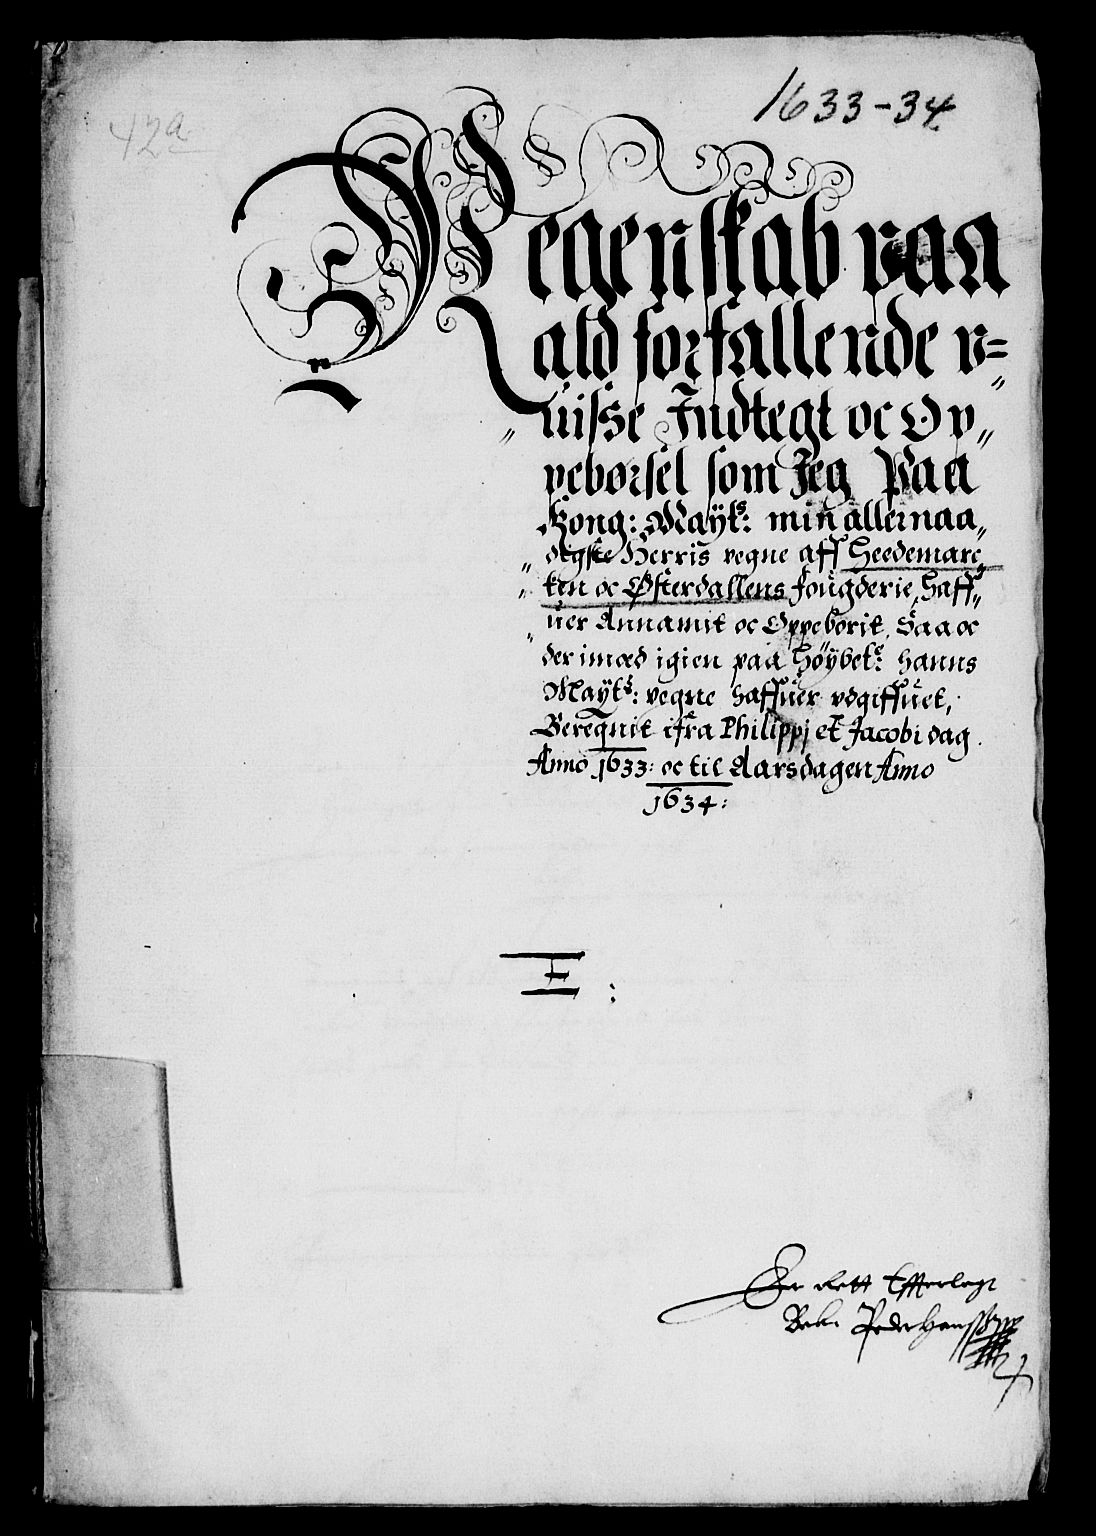 1633-34
42a
Regenskab paa
ald forfallende v=
uisse Indtegt oc Op„
„ peborsel som Jeg Paa
Kong: Maytˢ: min allernaa„
„ digste Herris vegne aff Heedemarc„
„ ken oc Østerdallens fougderie, Haff„
„ uer Annamit oc Oppeborit, Saa oc
der imod igien paa Høybetᵉ: hanns
Maÿtˢ: vegne haffuer vdgiffuet,
Berequit ifra Philippi et Jacobi dag
Anno 1633: oc til Aarsdagen Anno
1634:
E:
Er rett Efferlagt
Peder Hanss